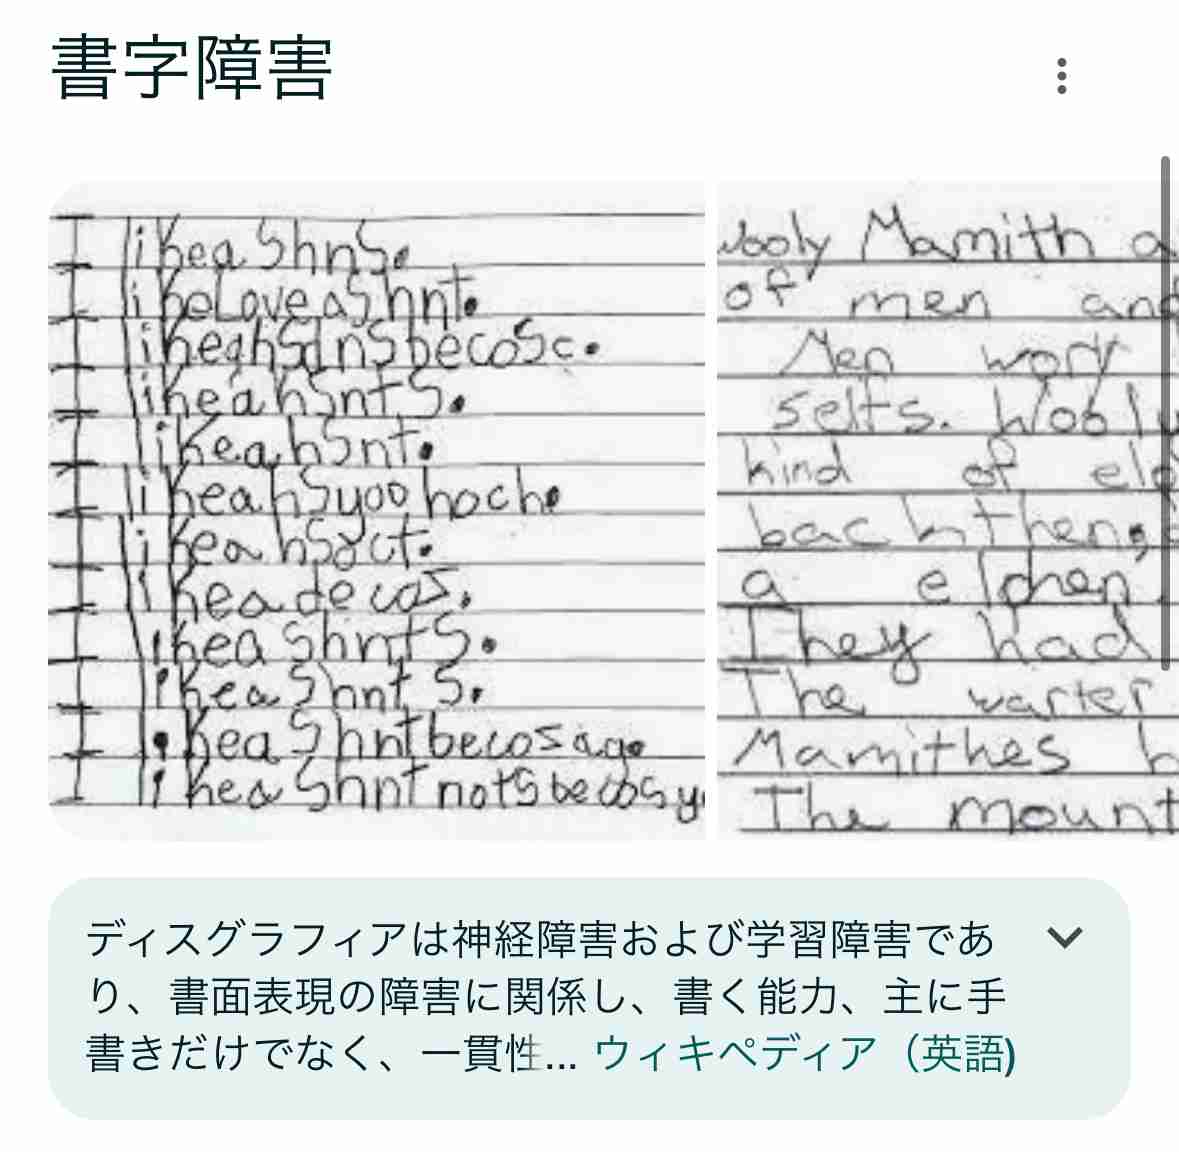 書字障害
I likea ShnS.
I likeLove aShnt.
I likeahSInSbecoSc.
I likeahSntS.
I likeahSnt.
I likeahSyoo hoch.
I likeahSyct.
I likea de cos.
I likea ShntS.
I likea Shnt S.
I likea Shnt becos a go
I likea Shnt notS be cos y
wooly Mamith a
of men and
Men wory
selfs. Wobly
kind of ele
back then,
a elphen.
They had
The warter
Mamithes h
The mount
ディスグラフィアは神経障害および学習障害であ
り、書面表現の障害に関係し、書く能力、主に手
書きだけでなく、一貫性... ウィキペディア（英語)